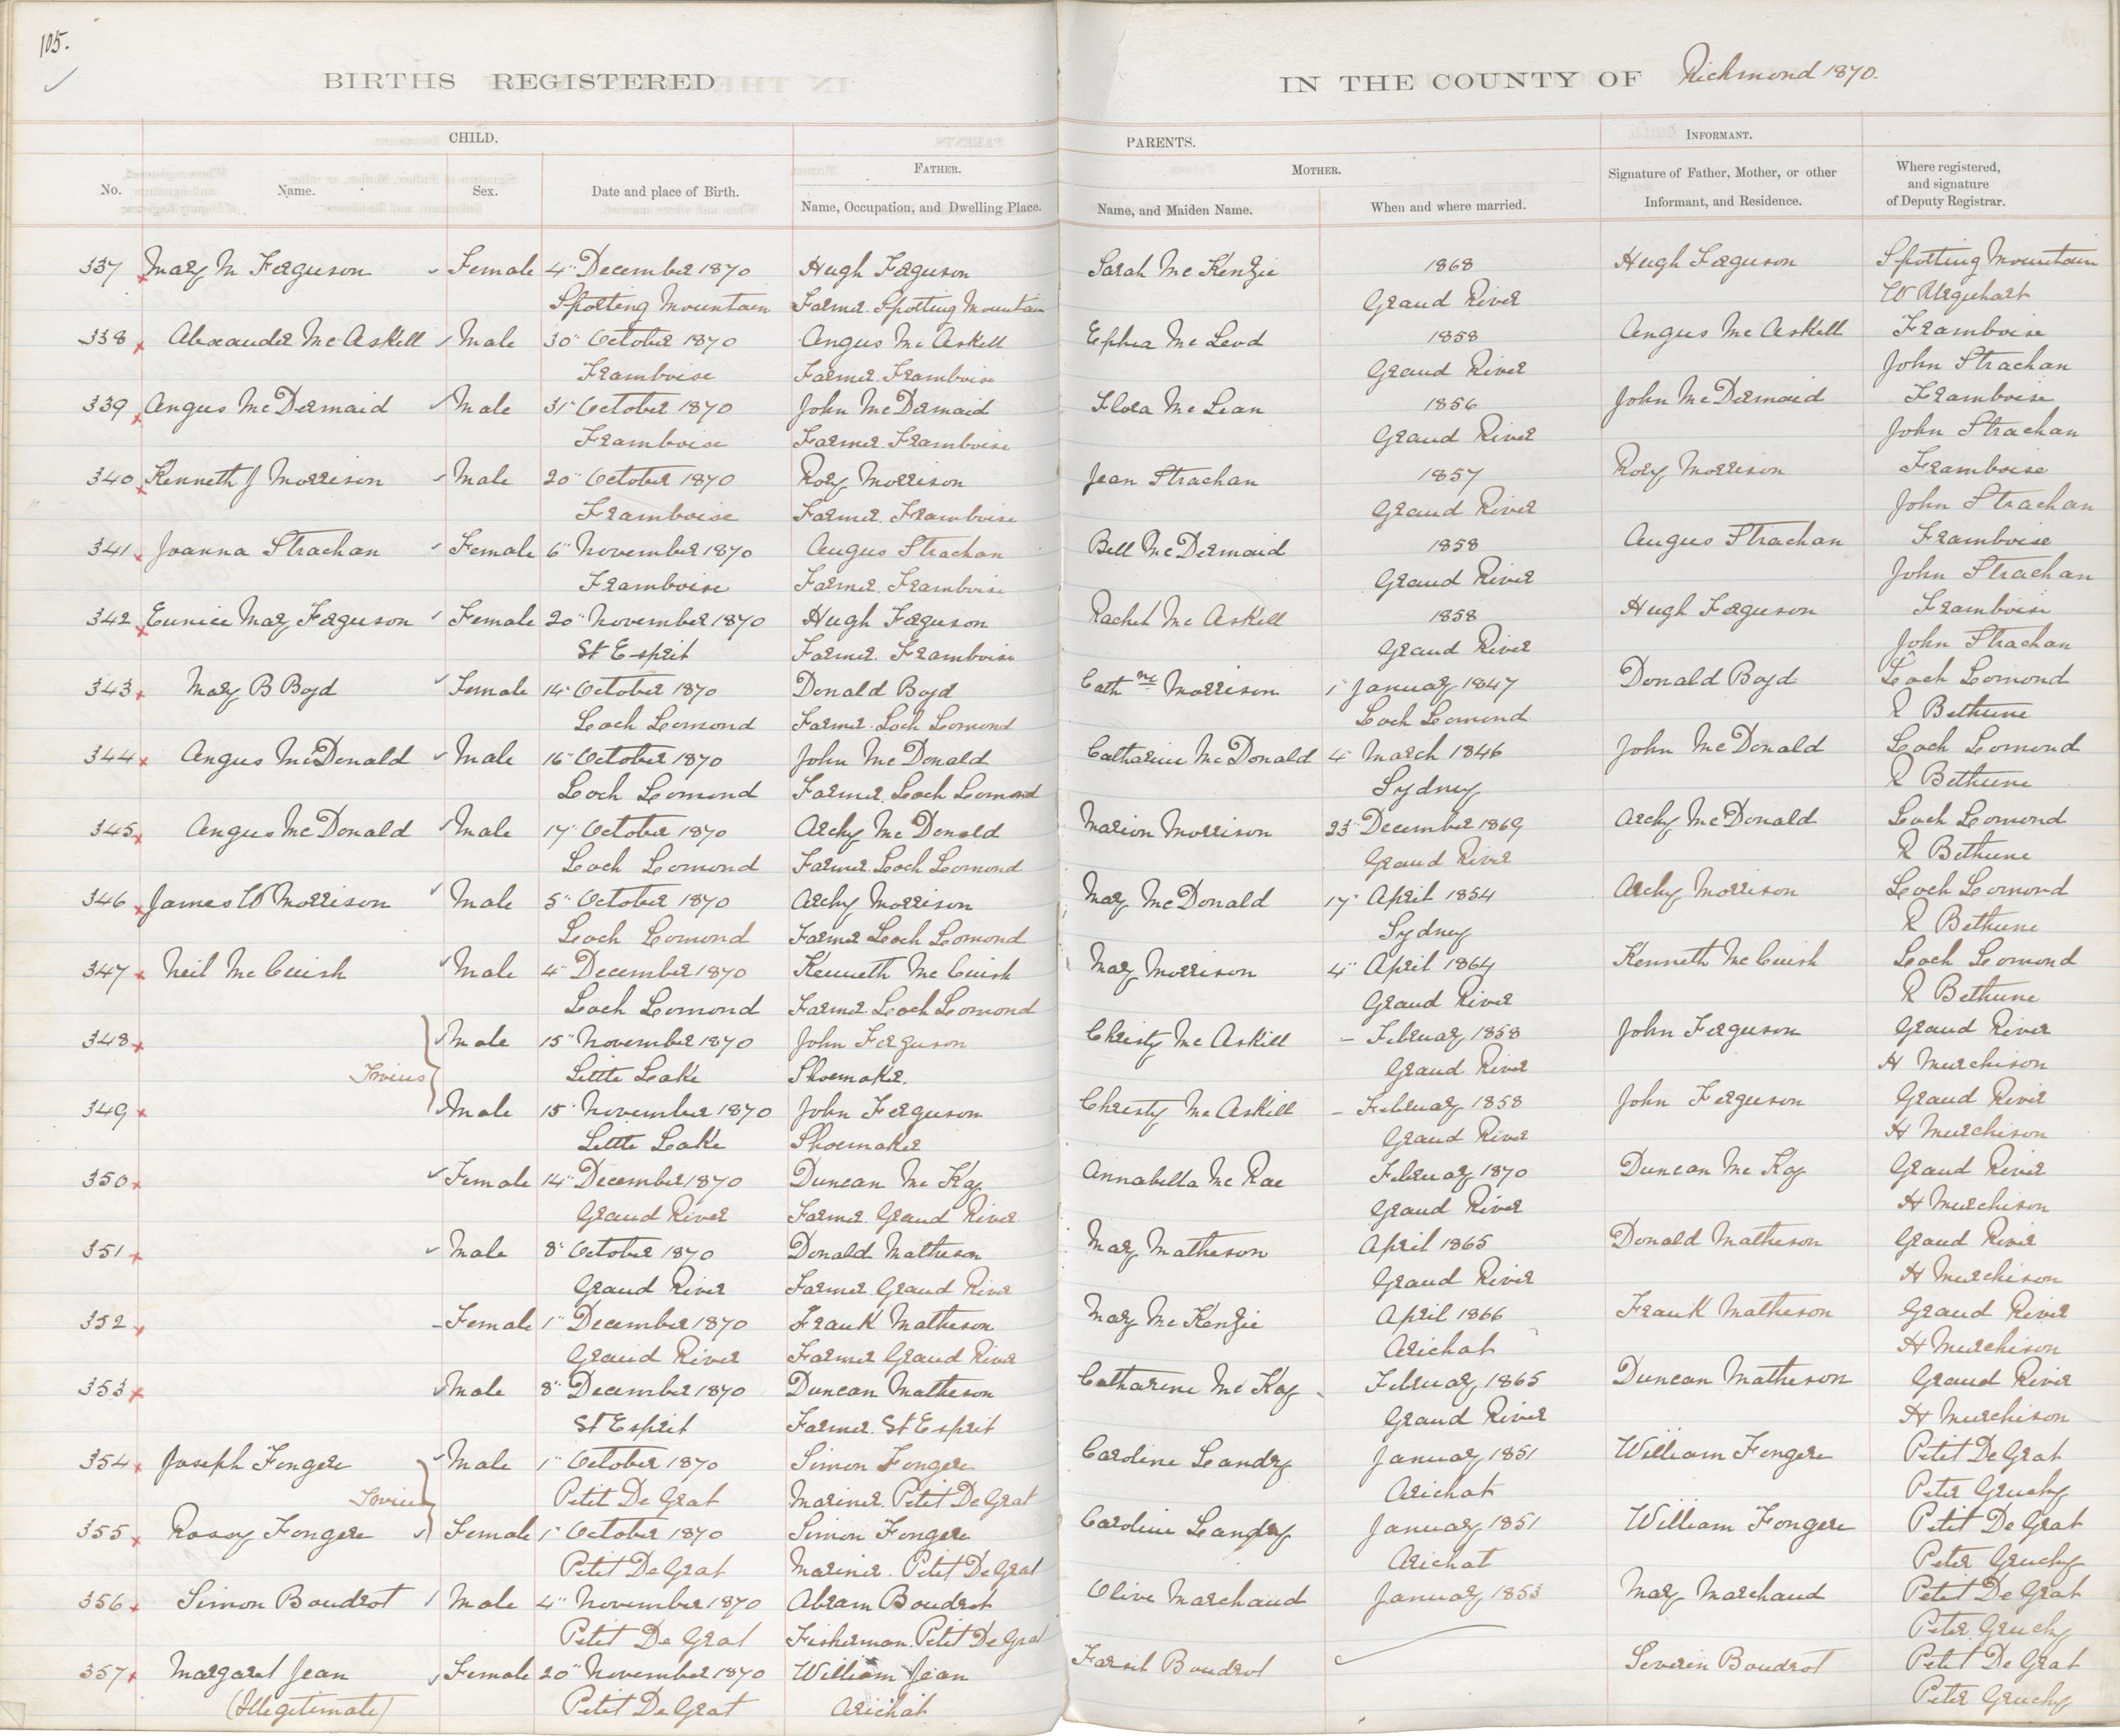 105.
BIRTHS REGISTERED IN THE COUNTY OF Richmond 1870.
CHILD. PARENTS. INFORMANT.
FATHER. MOTHER.
No. Name. Sex. Date and place of Birth. Name, Occupation, and Dwelling Place. Name, and Maiden Name. When and where married. Signature of Father, Mother, or other Informant, and Residence. Where registered, and signature of Deputy Registrar.
337 Mary M Ferguson Female 4" December 1870 Hugh Ferguson Sarah McKenzie 1868 Hugh Ferguson Sporting Mountain
Sporting Mountain Farmer. Sporting Mountain Grand River W Urquhart
338 Alexander McAskill Male 30" October 1870 Angus McAskill Ephia McLeod 1858 Angus McAskill Framboise
Framboise Farmer. Framboise Grand River John Strachan
339 Angus McDermaid Male 31" October 1870 John McDermaid Flora McLean 1856 John McDermaid Framboise
Framboise Farmer. Framboise Grand River John Strachan
340 Kenneth J Morrison Male 20" October 1870 Rory Morrison Jean Strachan 1857 Rory Morrison Framboise
Framboise Farmer. Framboise Grand River John Strachan
341 Joanna Strachan Female 6" November 1870 Angus Strachan Bell McDermaid 1858 Angus Strachan Framboise
Framboise Farmer. Framboise Grand River John Strachan
342 Eunice Mary Ferguson Female 20" November 1870 Hugh Ferguson Rachel McAskill 1858 Hugh Ferguson Framboise
St Esprit Farmer. Framboise Grand River John Strachan
343 Mary B Boyd Female 14" October 1870 Donald Boyd Cathne Morrison 1" January 1847 Donald Boyd Loch Lomond
Loch Lomond Farmer. Loch Lomond Loch Lomond R Bethune
344 Angus McDonald Male 16" October 1870 John McDonald Catharine McDonald 4" March 1846 John McDonald Loch Lomond
Loch Lomond Farmer. Loch Lomond Sydney R Bethune
345 Angus McDonald Male 17" October 1870 Archy McDonald Marion Morrison 23" December 1869 Archy McDonald Loch Lomond
Loch Lomond Farmer. Loch Lomond Grand River R Bethune
346 James W Morrison Male 5" October 1870 Archy Morrison Mary McDonald 17" April 1854 Archy Morrison Loch Lomond
Loch Lomond Farmer Loch Lomond Sydney R Bethune
347 Neil McCuish Male 4" December 1870 Kenneth McCuish Mary Morrison 4" April 1864 Kenneth McCuish Loch Lomond
Loch Lomond Farmer. Loch Lomond Grand River R Bethune
348 Male 15" November 1870 John Ferguson Christy McAskill – February 1858 John Ferguson Grand River
Twins Little Lake Shoemaker. Grand River H Murchison
349 Male 15" November 1870 John Ferguson Christy McAskill – February 1858 John Ferguson Grand River
Little Lake Shoemaker Grand River H Murchison
350 Female 14" December 1870 Duncan McKay Annabella McRae February 1870 Duncan McKay Grand River
Grand River Farmer. Grand River Grand River H Murchison
351 Male 8" October 1870 Donald Matheson Mary Matheson April 1865 Donald Matheson Grand River
Grand River Farmer. Grand River Grand River H Murchison
352 Female 1" December 1870 Frank Matheson Mary McKenzie April 1866 Frank Matheson Grand River
Grand River Farmer Grand River Arichat H Murchison
353 Male 8" December 1870 Duncan Matheson Catharine McKay February 1865 Duncan Matheson Grand River
St Esprit Farmer. St Esprit Grand River H Murchison
354 Joseph Fongere Male 1" October 1870 Simon Fongere Caroline Landry January 1851 William Fongere Petit De Grat
Twins Petit De Grat Mariner. Petit De Grat Arichat Peter Gruchy
355 Rosay Fongere Female 1" October 1870 Simon Fongere Caroline Landry January 1851 William Fongere Petit De Grat
Petit De Grat Mariner. Petit De Grat Arichat Peter Gruchy
356 Simon Boudrot Male 4" November 1870 Abram Boudrot Olive Marchaud January 1853 Mary Marchaud Petit De Grat
Petit De Grat Fisherman. Petit De Grat Peter Gruchy
357 Margaret Jean Female 20" November 1870 William Jean Boudrot Severin Boudrot Petit De Grat
(Illegitimate) Petit De Grat Arichat Peter Gruchy